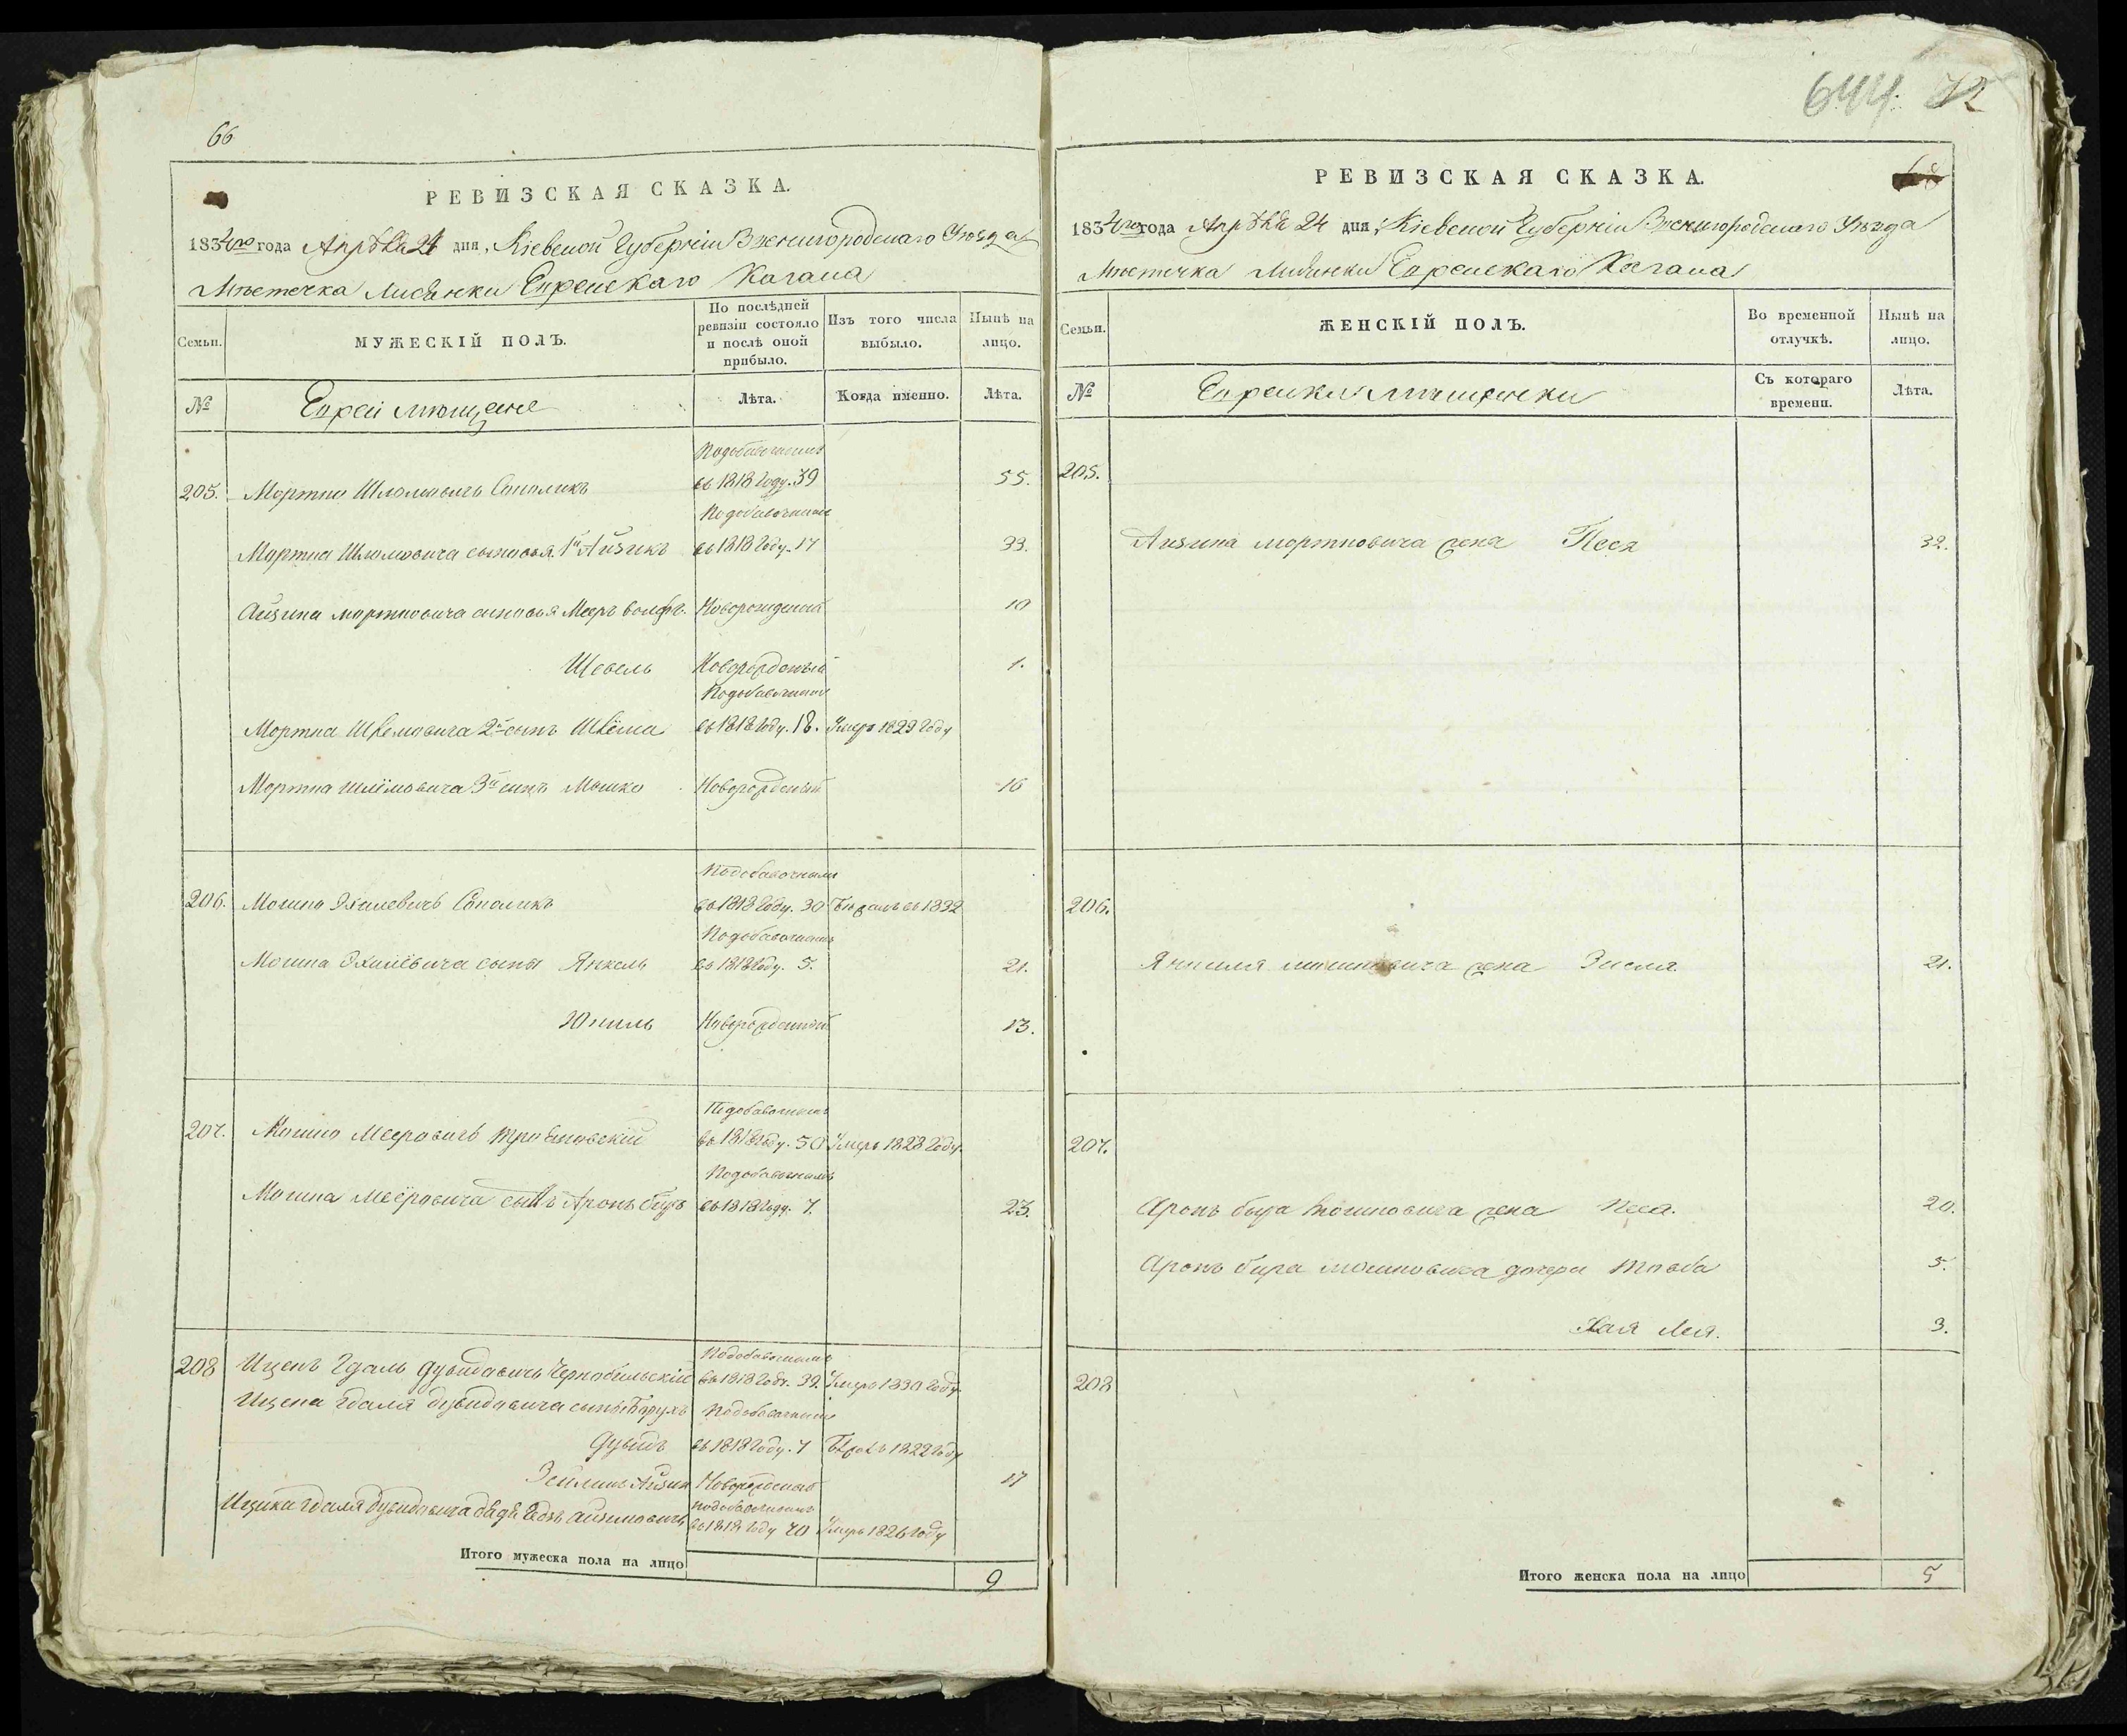 66
РЕВИЗСКАЯ СКАЗКА.
1834го года Апрѣля 24 дня, Кіевской Губерніи Звенигородскаго Уѣзда
Мѣстечка Лисянки Еврейскаго Кагала
Семьи.
МУЖЕСКІЙ ПОЛЪ.
По послѣдней ревизіи состояло и послѣ оной прибыло.
Изъ того числа выбыло.
Нынѣ на лицо.
№
Евреи мѣщане
Лѣта.
Когда именно.
Лѣта.
Подобавочнымъ
205. Мортко Шлиомовичъ Сополикъ въ 1818 году. 39 55.
Подобавочнымъ
Мортка Шлиомовича сыновья 1й Айзикъ въ 1818 году. 17 33.
Айзика мортковича сыновья Мееръ Волфъ. Новорожденый 10
Шевель Новорожденый 1.
Подобавочнымъ
Мортка Шлемовича 2й сынъ Шлёма въ 1818 году. 18. Умеръ 1829 году
Мортка шлёмовича 3й сынъ Мошко Новорожденый 16
Подобавочнымъ
206. Мошко Эхилевичъ Сополикъ въ 1818 году. 30 Бѣжалъ въ 1832
Подобавочнымъ
Мошка Эхилёвича сыны Янкель въ 1818 году. 5. 21.
Юкиль Новорожденный 13.
Подобавочнымъ
207. Мошко Мееровичъ въ 1818 году. 50 Умеръ 1828 году.
Подобавочнымъ
Мошка Меёровича сынъ Аронъ беръ въ 1818 году. 7. 23.
Подобавочнымъ
208 Ицекъ Гдаль Дувидовичъ Чернобильскій въ 1818 году. 39. Умеръ 1830 году.
Ицека Гдаля дувидовича сыны Борухъ Подобавочнымъ
Дувидъ въ 1818 году. 7 1822 году
Зейликъ Айзик Новорожденый 17
подобавочнымъ
Ицика Гдаля дувидовича дядя въ 1818 году 70 Умеръ 1826 году
Итого мужеска пола на лицо
9
644. 72
68
РЕВИЗСКАЯ СКАЗКА.
1834го года Апрѣля 24 дня, Кіевской Губерніи Звенигородскаго Уѣзда
Мѣстечка Лисянки Еврейскаго Кагала
Семьи.
ЖЕНСКІЙ ПОЛЪ.
Во временной отлучкѣ.
Нынѣ на лицо.
№
Еврейки мѣщанки
Съ котораго времени.
Лѣта.
205.
Айзика мортковича жена Песя 32.
206.
Янкиля мошковича жена Зисля 21.
207.
Аронъ бера мошковича жена Песя. 20.
Аронъ бера мошковича дочери Товба 5.
Хая Лея. 3.
208
Итого женска пола на лицо
5